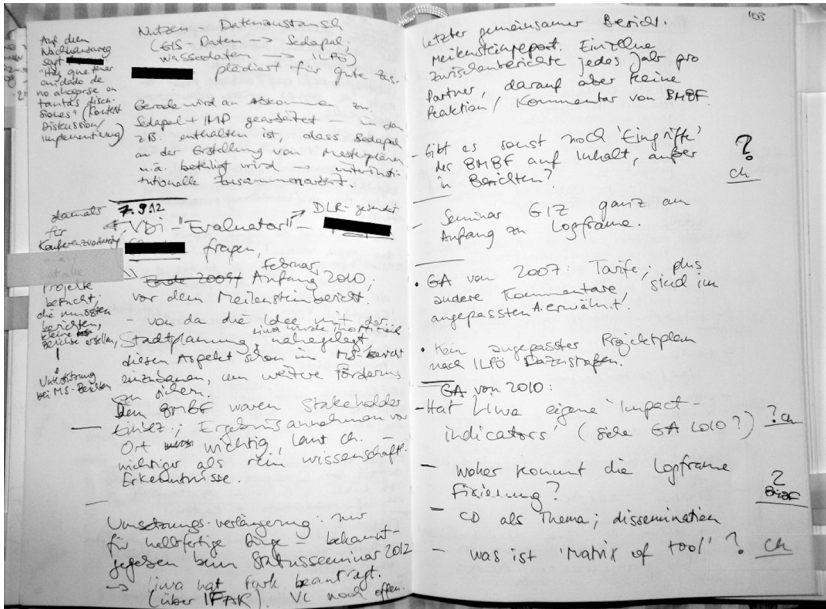 Nutzen - Datenaustausch
(GIS-Daten → Sedapal;
Wasserdaten → ILPÖ)
plädiert für gute Zus.
Auf dem
Nachhauseweg
sagt
"Hay que tener
cuidado de
no ahogarse en
tantas discu-
siones" (Kontext
Diskussion/
Implementierung)
Gerade wird an Abkommen zw.
Sedapal + IMP gearbeitet - in dem
z.B. enthalten ist, dass Sedapal
an der Erstellung von Masterplänen
u.a. beteiligt wird → interinsti-
tutionelle Zusammenarbeit.
7.9.12
VDI-"Evaluator" - DLR-gesendet
fragen,
damals
für
Projekte
besucht;
die mussten
berichten,
Berichte erstellen,
bei MS-Bericht
Ende 2009/ Anfang 2010; Februar
vor dem Meilensteinbericht.
- von da die Idee mit der
Stadtplanung, Liwa wurde nahegelegt,
diesen Aspekt schon im MS-Bericht
einzubauen, um weitere Förderung
zu sichern.
Dem BMBF waren Stakeholder
Einbez.; Ergebnisannahmen vor
Ort wichtig, laut ch. -
wichtiger als rein wissenschaftl.
Erkenntnisse.
Umsetzungs-verlängerung: nur
für halbfertige Dinge - bekannt-
gegeben beim Statusseminar 2012
→ Liwa hat Park beantragt.
(über IFAK). VL noch offen.
103
Letzter gemeinsamer Bericht.
Meilensteinreport. Einzelne
Zwischenberichte jedes Jahr pro
Partner, darauf aber keine
Reaktion / Kommentar von BMBF.
- Gibt es sonst noch 'Eingriffe'
der BMBF auf Inhalt, außer
in Berichten?
?
ch
- Seminar GIZ ganz am
Anfang zu Logframe.
• GA von 2007: Tarife; plus
andere Kommentare, sind im
angepassten A. erwähnt.
• Kein angepasster Projektplan
nach ILPÖ Dazustoßen.
GA von 2010:
- Hat Liwa eigene 'impact-
indicators' (siehe GA 2010?) ? ch
- woher kommt die Logframe
Fixierung?
?
- CD als Thema; dissemination
- was ist 'Matrix of tool'? ch